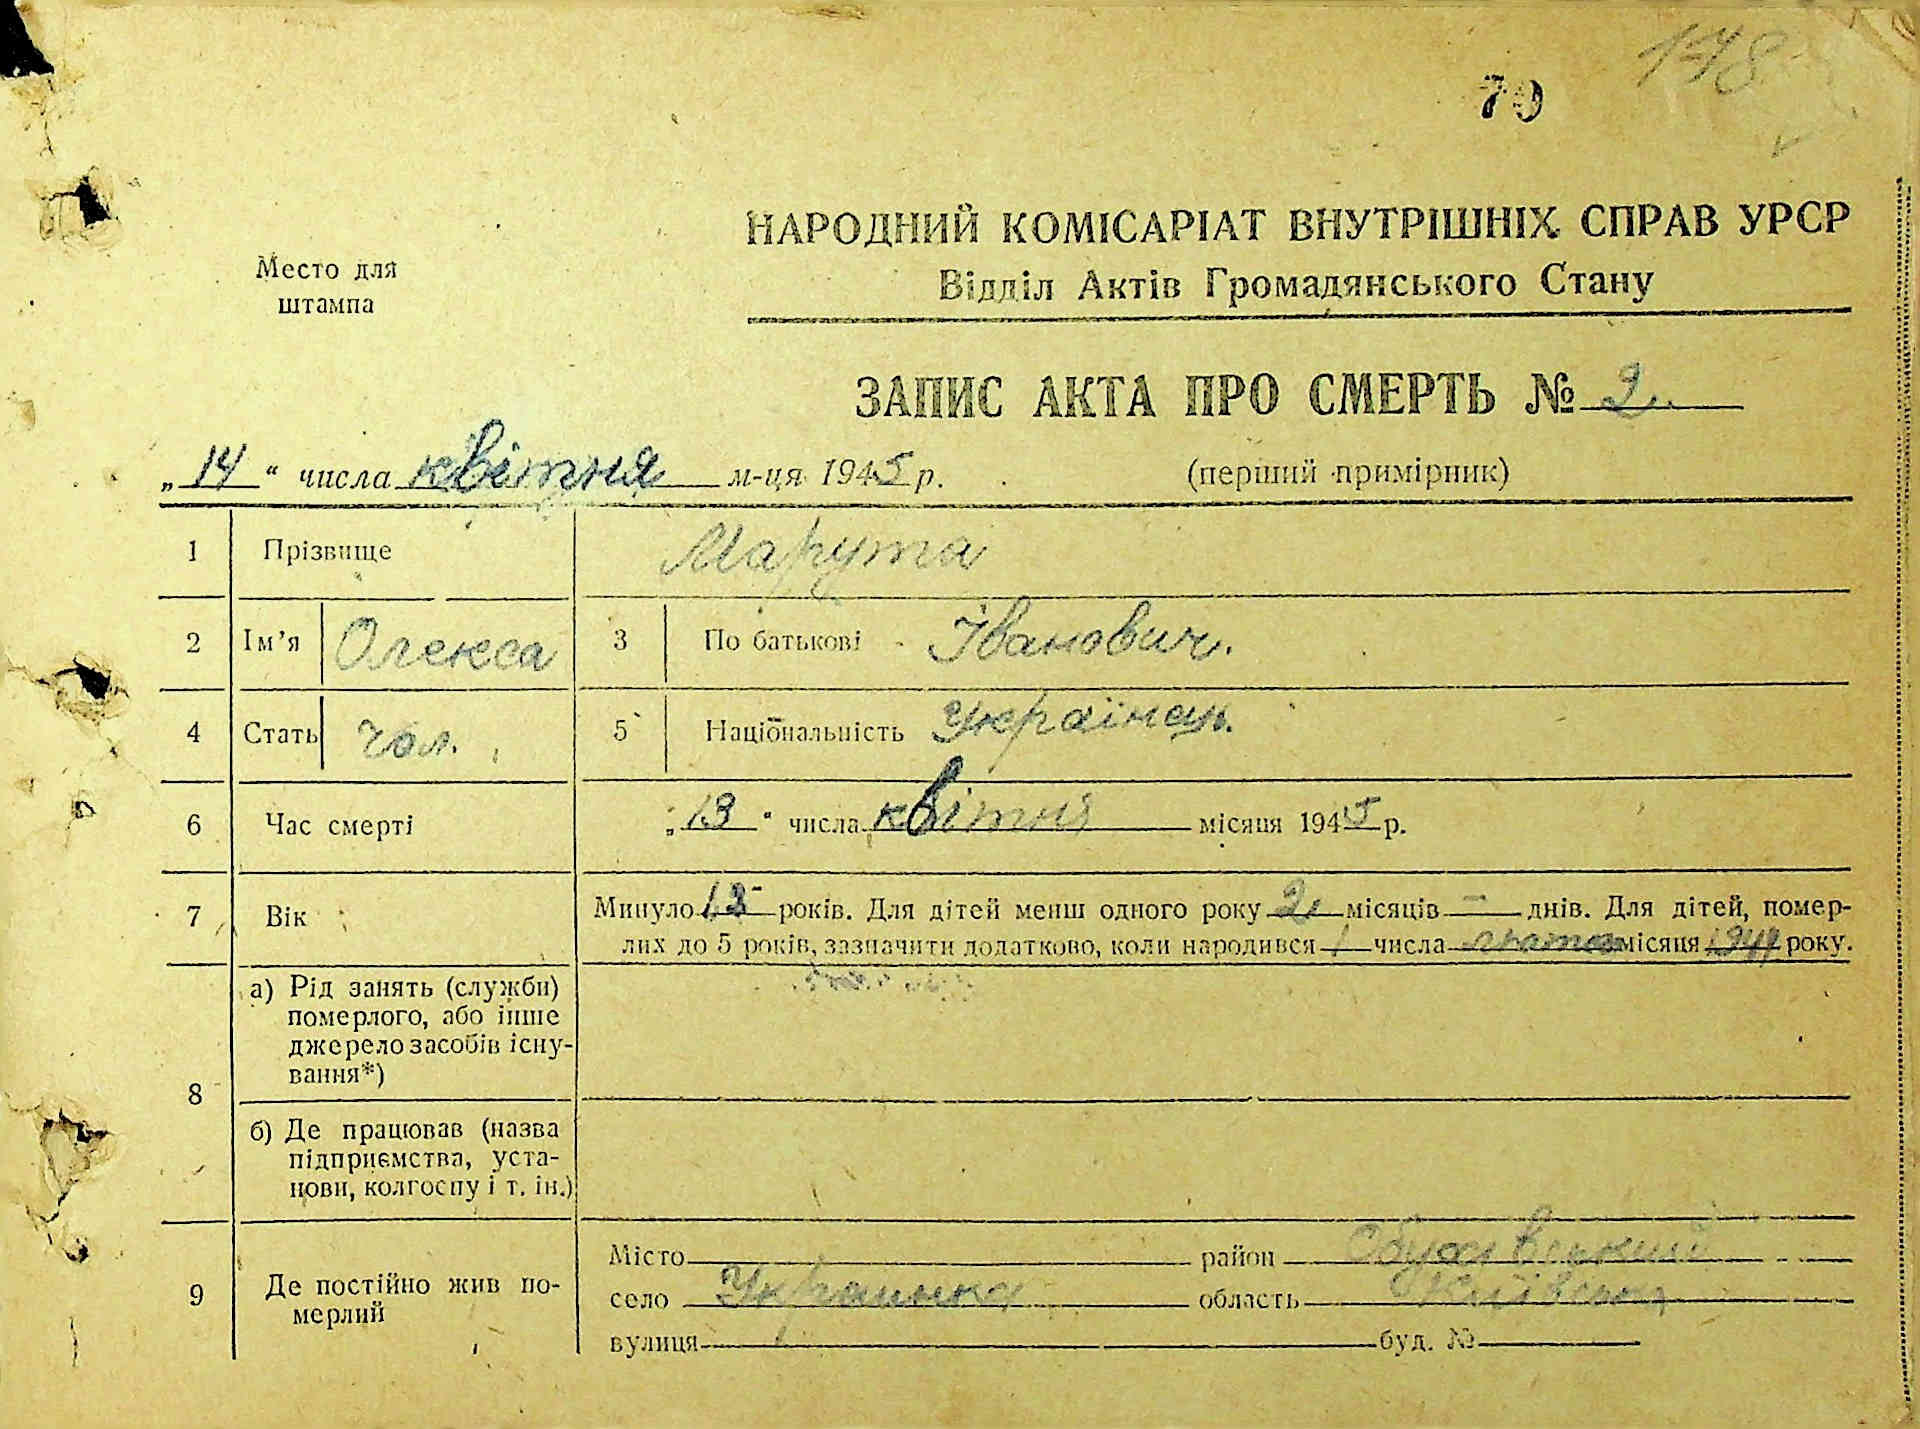 178
79
Место для
штампа
НАРОДНИЙ КОМІСАРІАТ ВНУТРІШНІХ СПРАВ УРСР
Відділ Актів Громадянського Стану
ЗАПИС АКТА ПРО СМЕРТЬ № 2.
„14“ числа квітня м-ця 1945 р.
(перший примірник)
1 Прізвище Марута
2 Ім’я Олекса 3 По батькові Іванович.
4 Стать чол. 5 Національність Українець.
6 Час смерті „13“ числа квітня місяця 1945 р.
7 Вік Минуло 13 років. Для дітей менш одного року 2 місяців — днів. Для дітей, помер-
лих до 5 років, зазначити додатково, коли народився 1 числа місяця року.
8 а) Рід занять (служби)
померлого, або інше
джерело засобів існу-
вання*)
б) Де працював (назва
підприємства, уста-
нови, колгоспу і т. ін.)
9 Де постійно жив по-
мерлий
Місто район Обухівський
село Українка область Київська
вулиця буд. №